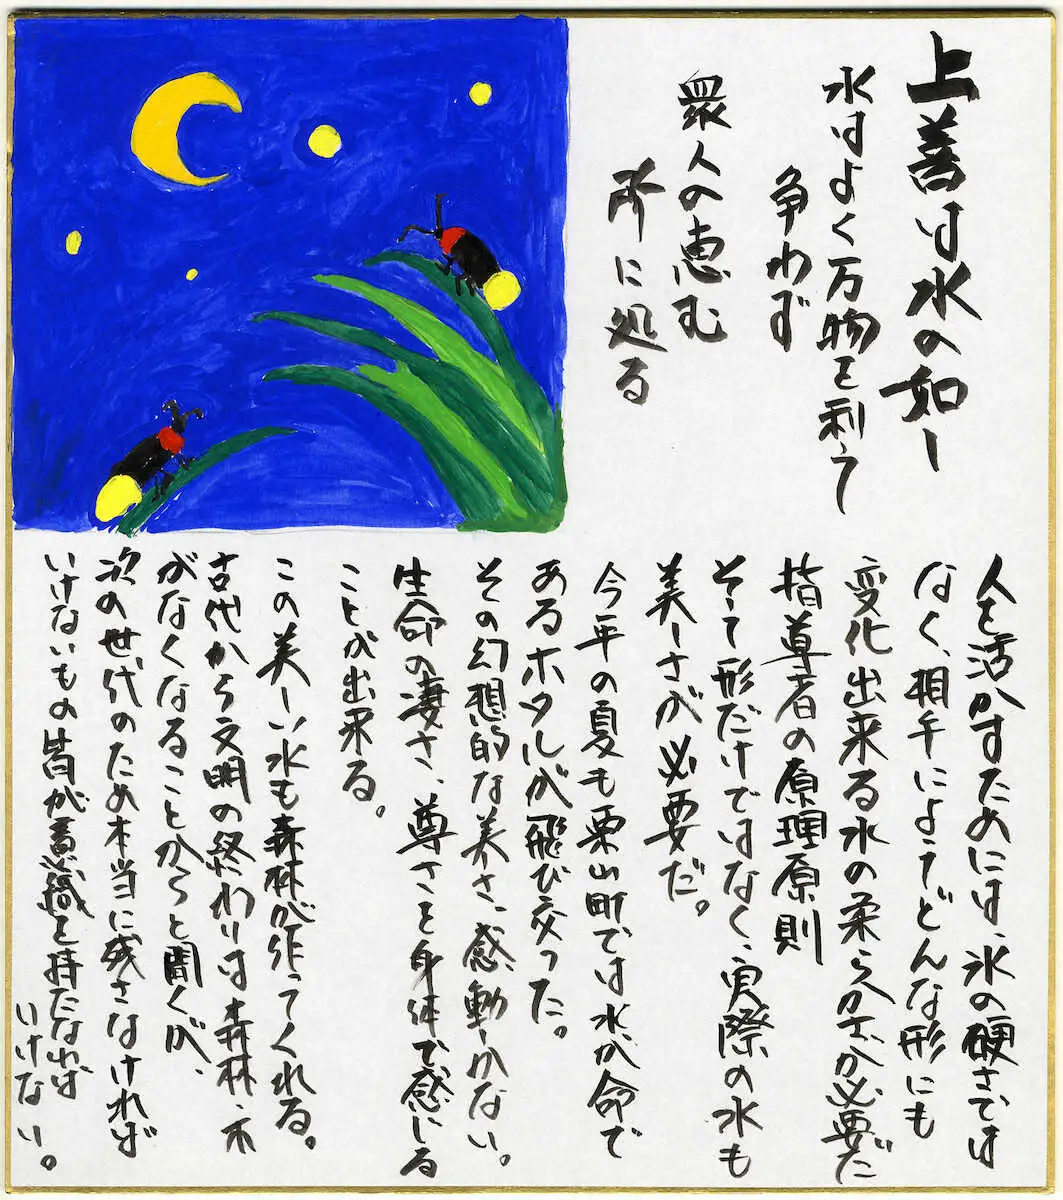 上善は水の如し
水はよく万物を利して
争わず
衆人の悪む
所に処る
人を活かすためには、氷の硬さでは
なく、相手によってどんな形にも
変化出来る水の柔らかさが必要だ
指導者の原理原則
そして形だけではなく、実際の水も
美しさが必要だ。
今年の夏も栗山町では水が命で
あるホタルが飛び交った。
その幻想的な美しさ、感動しかない。
生命の凄さ、尊さを身体で感じる
ことが出来る。
この美しい水も森林が作ってくれる。
古代から文明の終わりは森林・木
がなくなることからと聞くが、
次の世代のため本当に残さなければ
いけないもの皆が意識を持たなければ
いけない。